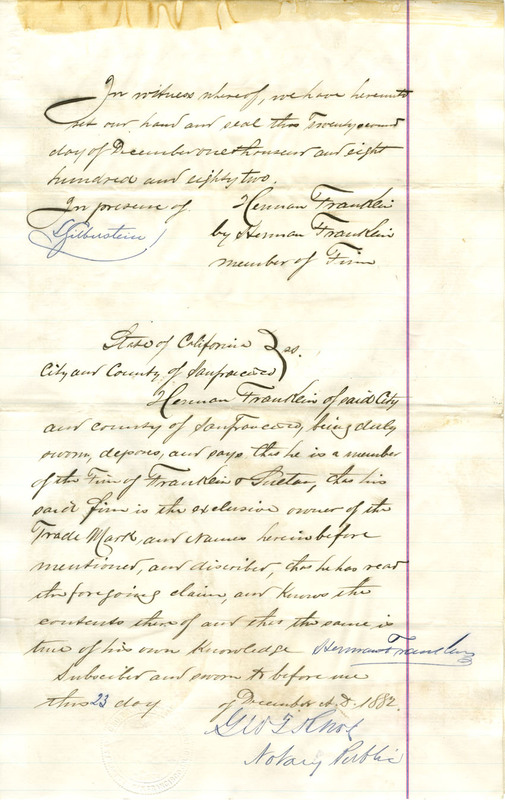 In witness whereof, we have hereunto
set our hand and seal this Twenty second
day of December one thousand and eight
hundred and eighty two.
In presence of Herman Franklin
Silberstein by Herman Franklin
member of Firm
State of California } ss.
City and County of San Francisco
Herman Franklin of said City
and county of San Francisco, being duly
sworn, deposes, and says that he is a member
of the Firm of Franklin &
said firm is the exclusive owner of the
Trade Mark and Names herein before
mentioned, and discribed, that he has read
the foregoing claim, and knows the
contents there of and that the same is
true of his own Knowledge Herman Franklin
Subscribed and sworn to before me
this 23 day of December A.D. 1882.
Geo T Knox
Notary Public